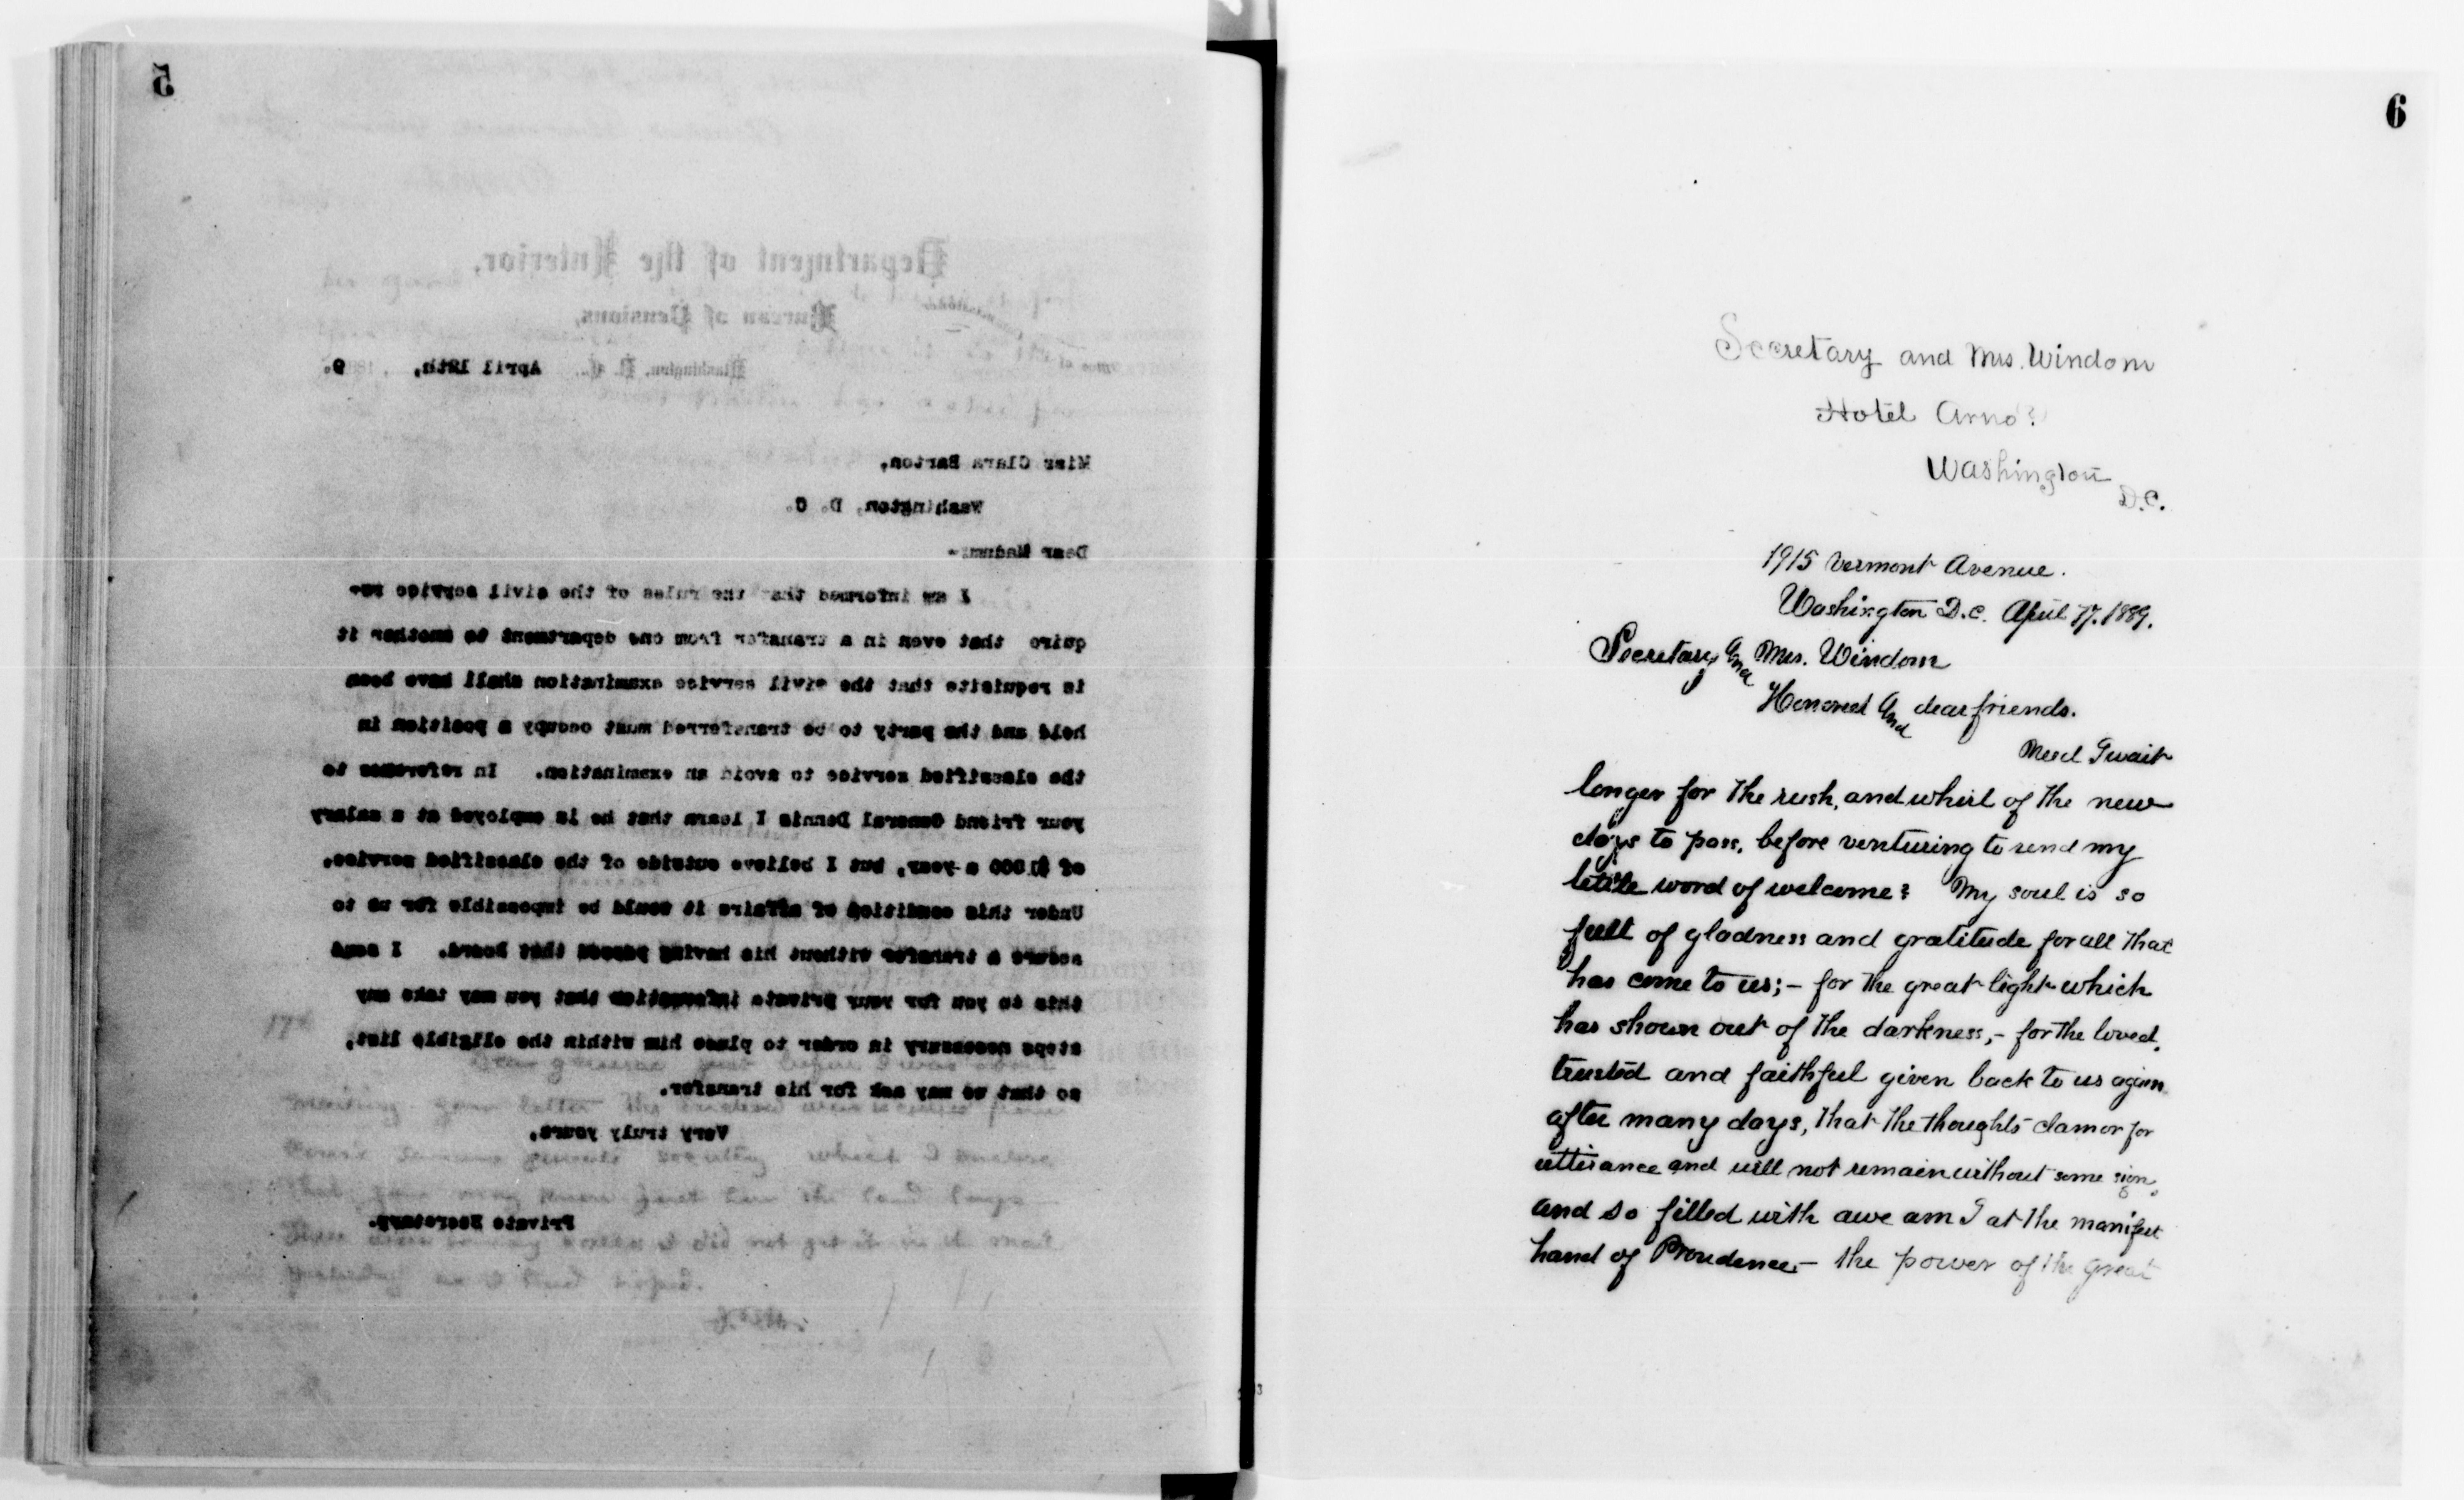 5
Department of the Interior,
Bureau of Pensions,
Washington, D. C. April 19th, 188 9.
Miss Clara Barton,
Washington, D. C.
Dear Madam:-
I am informed that the rules of the civil service re-
quire that even in a transfer from one department to another it
is requisite that the civil service examination shall have been
held and the party to be transferred must occupy a position in
the classified service to avoid an examination. In reference to
your friend General Dennis I learn that he is employed at a salary
of a year, but I believe outside of the classified service.
Under this condition of affairs it would be impossible for us to
secure a transfer without his having passed that board. I send
this to you for your private information that you may take any
steps necessary in order to place him within the eligible list,
so that we may ask for his transfer.
Very truly yours,
Private Secretary.
17th
6
Secretary and Mrs. Windom
Hotel Arno
Washington
D.C.
1915 Vermont Avenue.
Washington D.C. April 17. 1889.
Secretary and Mrs. Windom
Honored and dear friends.
Need I wait
longer for the rush, and whirl of the new
days to pass, before venturing to send my
little word of welcome? My soul is so
full of gladness and gratitude for all that
has come to us;- for the great light which
has shown out of the darkness,- for the loved,
trusted and faithful given back to us again
after many days, that the thoughts clamor for
utterance and will not remain without some sign.
And so filled with awe am I at the manifest
hand of Providence,- the power of the great